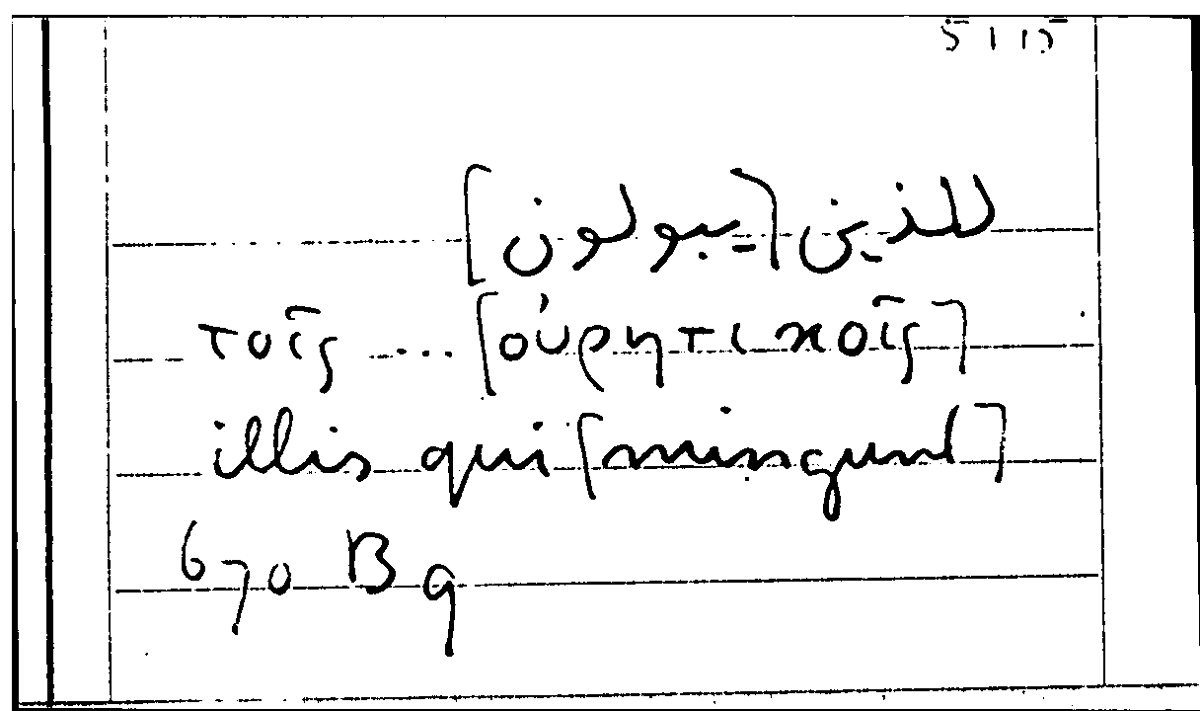 للذين [يبولون]
τοῖς ... [οὐρητικοῖς]
illis qui [mingunt]
670 B 9